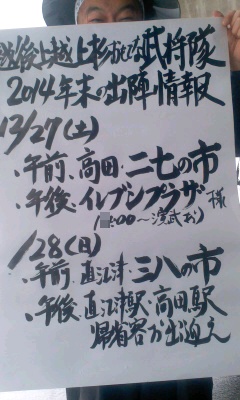 越後上越上杉おもてなし武将隊
2014年末の出陣情報
12/27(土)
、午前、高田・二七の市
、午後、イレブンプラザ様
:00〜演武あり)
/28(日)
、午前、直江津・三八の市
、午後、直江津駅・高田駅
帰省客お出迎え